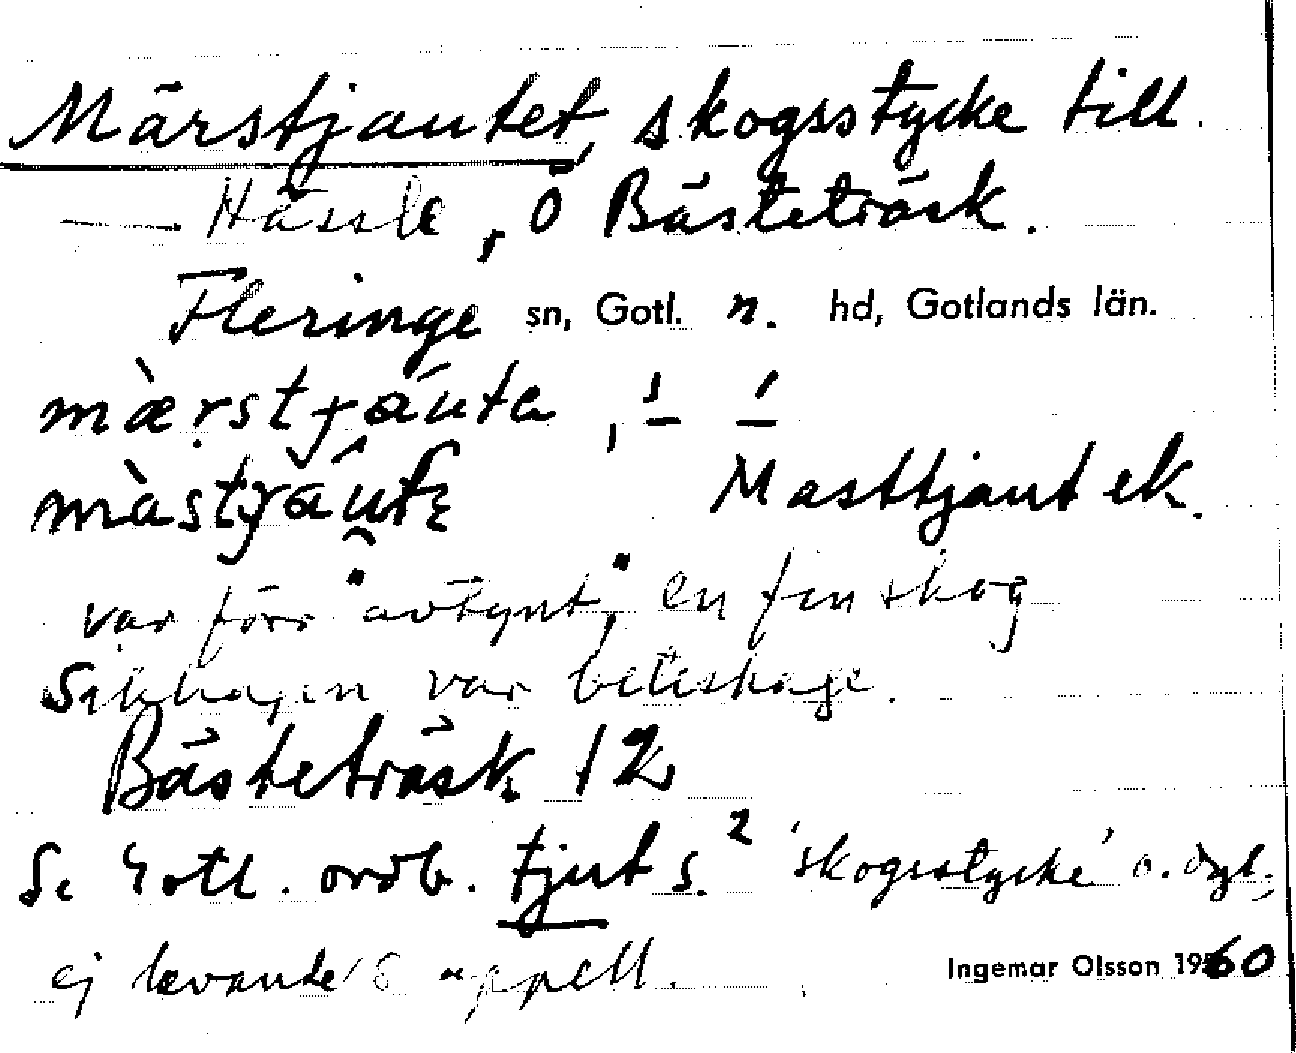 Märstjautet, skogsstycke till
Hässle, Ö Bästeträsk.
Fleringe sn, Gotl. n. hd, Gotlands län.
mæ̀rstjáuta,
Masttjaut ek.
var förr "avtynt", en fin skog
var beteshage.
Bästeträsk 12
Se Gotl. ordb. tjut s.² 'skogsstycke' o. dyl.,
ej levande s appell.
Ingemar Olsson 1960